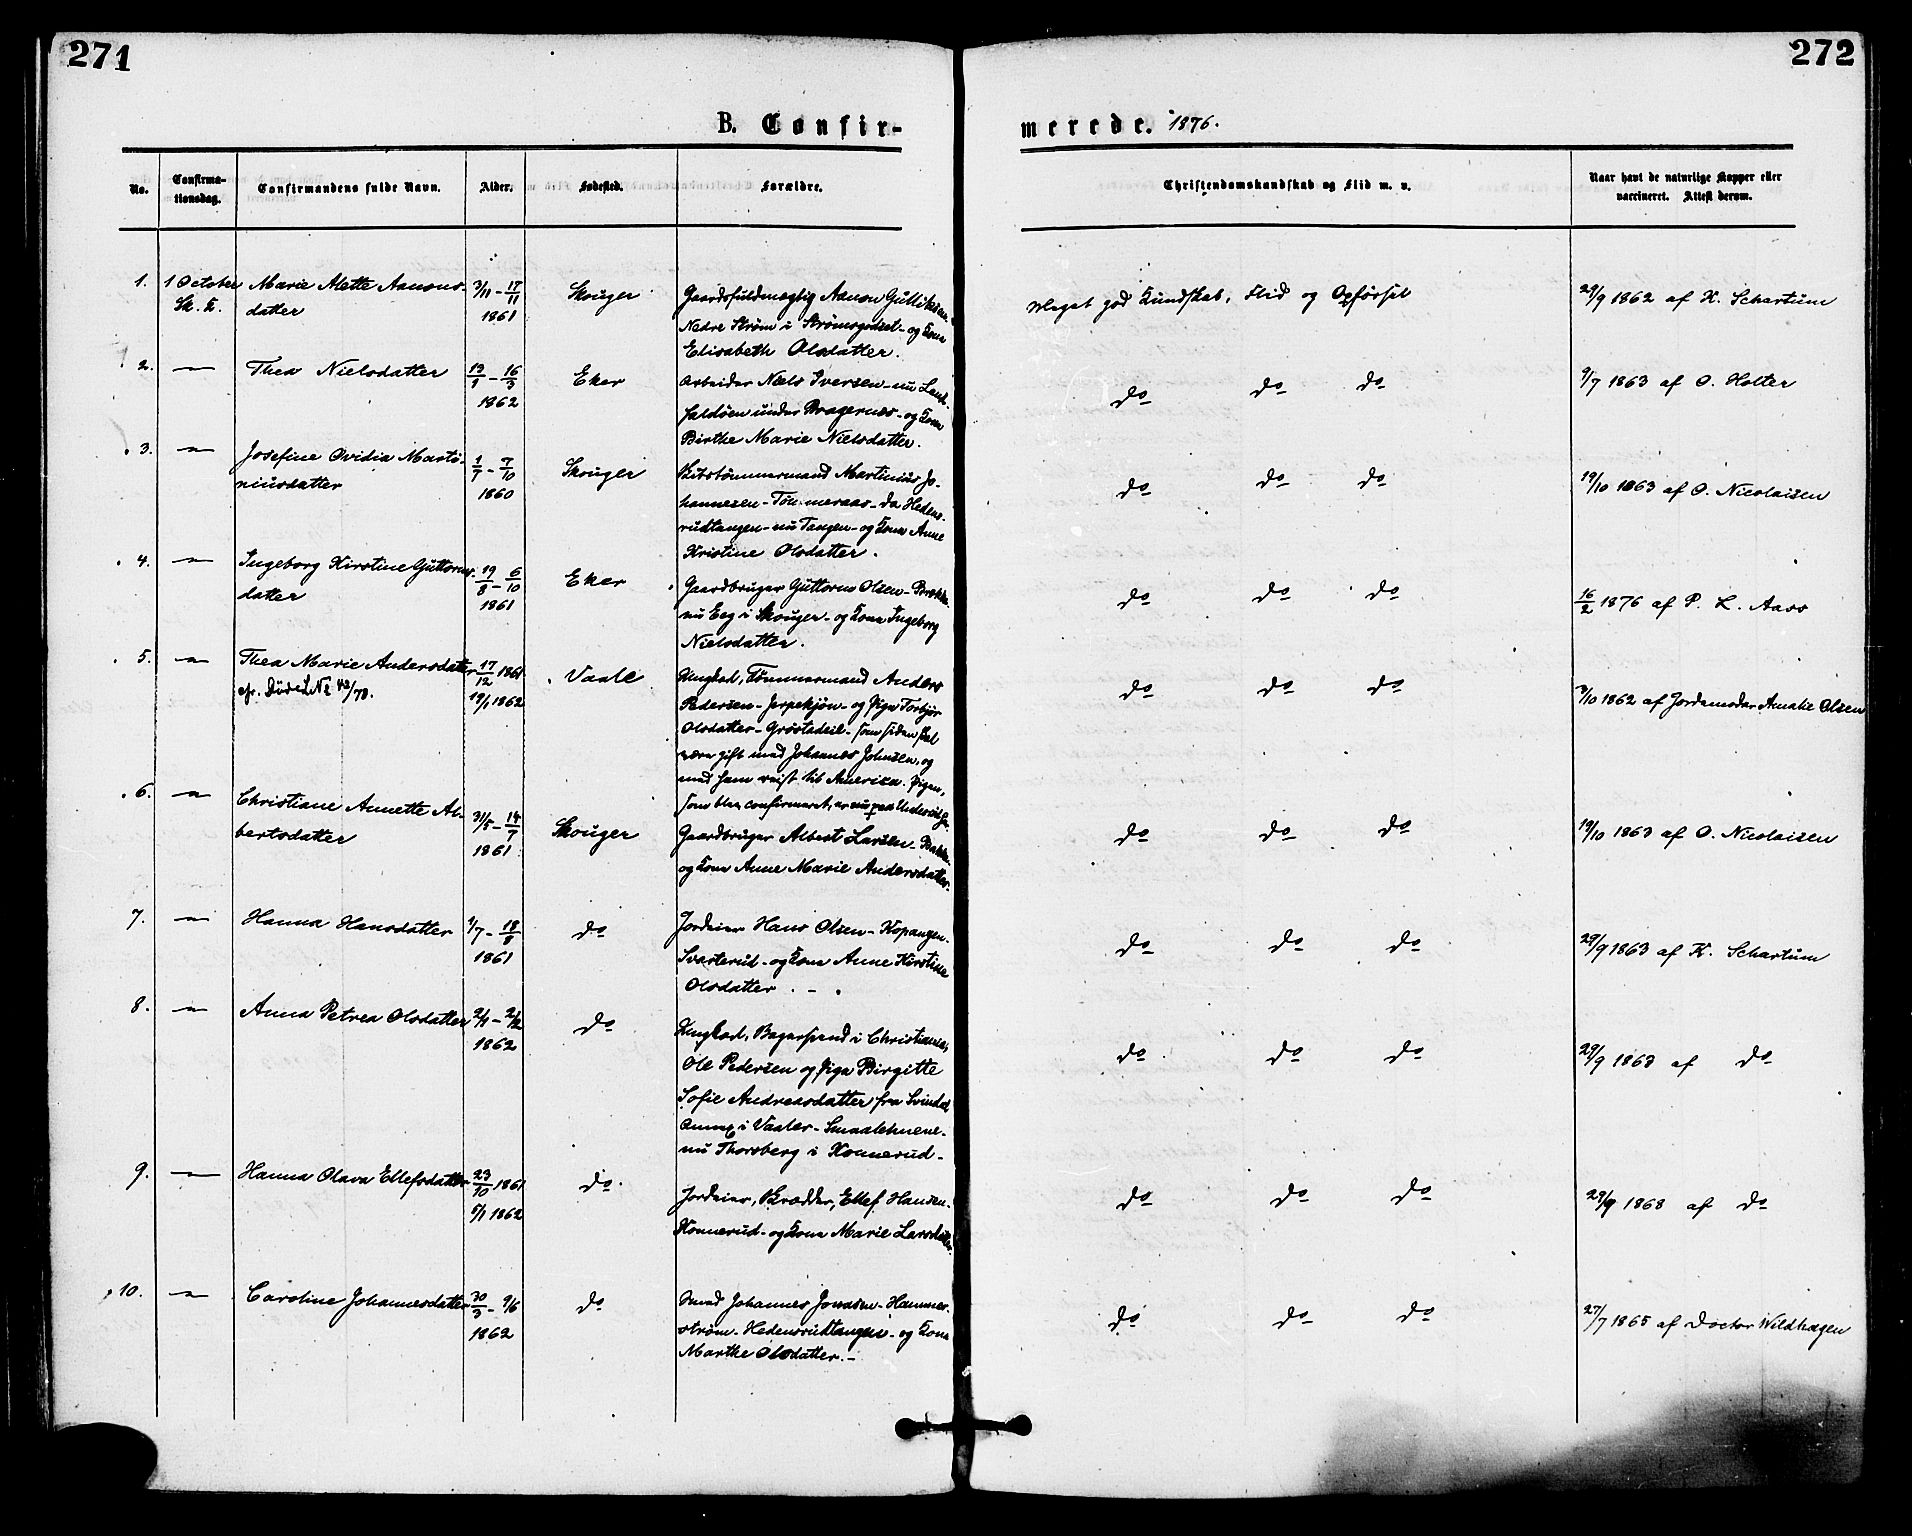 271
272
B. Confir-
merede. 1876.
No.
Confirma-
tionsdag.
Confirmandens fulde Navn.
Alder.
Fødested.
Forældre.
Christendomskundskab og Flid m. v.
Naar havt de naturlige Kopper eller
vaccineret. Attest derom.
1. 1 October Marie Alette Aanons- 3/11 - 17/11 Skouger Gaardsfuldmægtig Aanon Gulliksen Meget god Kundskab, Flid og Opførsel 29/9 1862 af K. Schartum
Sk. K. datter 1861 Nedre Strøm i Strømsgodset - og Kone
Elisabeth Olsdatter.
2. — Thea Nielsdatter 13/1 - 16/3 Eker Arbeider Niels Iversen - nu Land- do do do 9/7 1863 af O. Holter
1862 faldøen under Bragernæs - og Kone
Birthe Marie Nielsdatter.
3. — Josefine Ovidia Marti- 1/7 - 7/10 Skouger Martinius Jo- do do do 19/10 1863 af O. Nicolaisen
niusdatter 1860 hannesen - Tømmeraas - da Hedens-
rudtangen - nu Tangen - og Kone Anne
Kristine Olsdatter.
4. — Ingeborg Kirstine Guttorms- 19/8 - 6/10 Eker Gaardbruger Guttorm Olsen - do do do 16/2 1876 af P. L. Aass
datter 1861 nu Eeg i Skouger - og Kone Ingeborg
Nielsdatter.
5. — Thea Marie Andersdatter 17/12 1861 Vaale Ungkarl, Tømmermand Anders do do do 3/10 1862 af Jordemoder Amalie Olsen
cfr. Døde L. No 42/78. 19/1 1862 Pedersen - Jerpekjøn - og Pige Torbjør
Olsdatter - Grøstadeie - som siden skal
være gift med Johannes Johnsen, og
med ham reist til America. Pigen,
som blev confirmeret, er nu paa
6. — Christiane Annette Al- 31/5 - 14/7 Skouger Gaardbruger Albert Larsen - Bakke do do do 19/10 1863 af O. Nicolaisen
bertsdatter 1861 og Kone Anne Marie Andersdatter.
7. — Hanna Hansdatter 1/7 - 18/8 do Jordeier Hans Olsen - Kopangen - do do do 29/9 1863 af K. Schartum
1861 Svarterud - og Kone Anne Kirstine
Olsdatter. -
8. — Anna Petrea Olsdatter 2/1 - 2/2 do Ungkarl, Bagersvend i Christiania, do do do 29/9 1863 af do
1862 Ole Pedersen og Pige Birgitte
Sofie Andreasdatter fra Svindal
Annex i Vaaler - Smaalehnene -
nu Thorsberg i Konnerud -
9. — Hanna Olava Ellefsdatter 23/10 1861 do Jordeier, Skrædder, Ellef Hansen - do do do 29/9 1863 af do
5/1 1862 Konnerud - og Kone Marie Larsdatter.
10. — Caroline Johannesdatter 30/3 - 9/6 do Smed Johannes Jonasen - Hammer- do do do 27/7 1865 af Doctor Wildhagen
1862 strøm - Hedensrudtangen - og Kone
Marthe Olsdatter. -